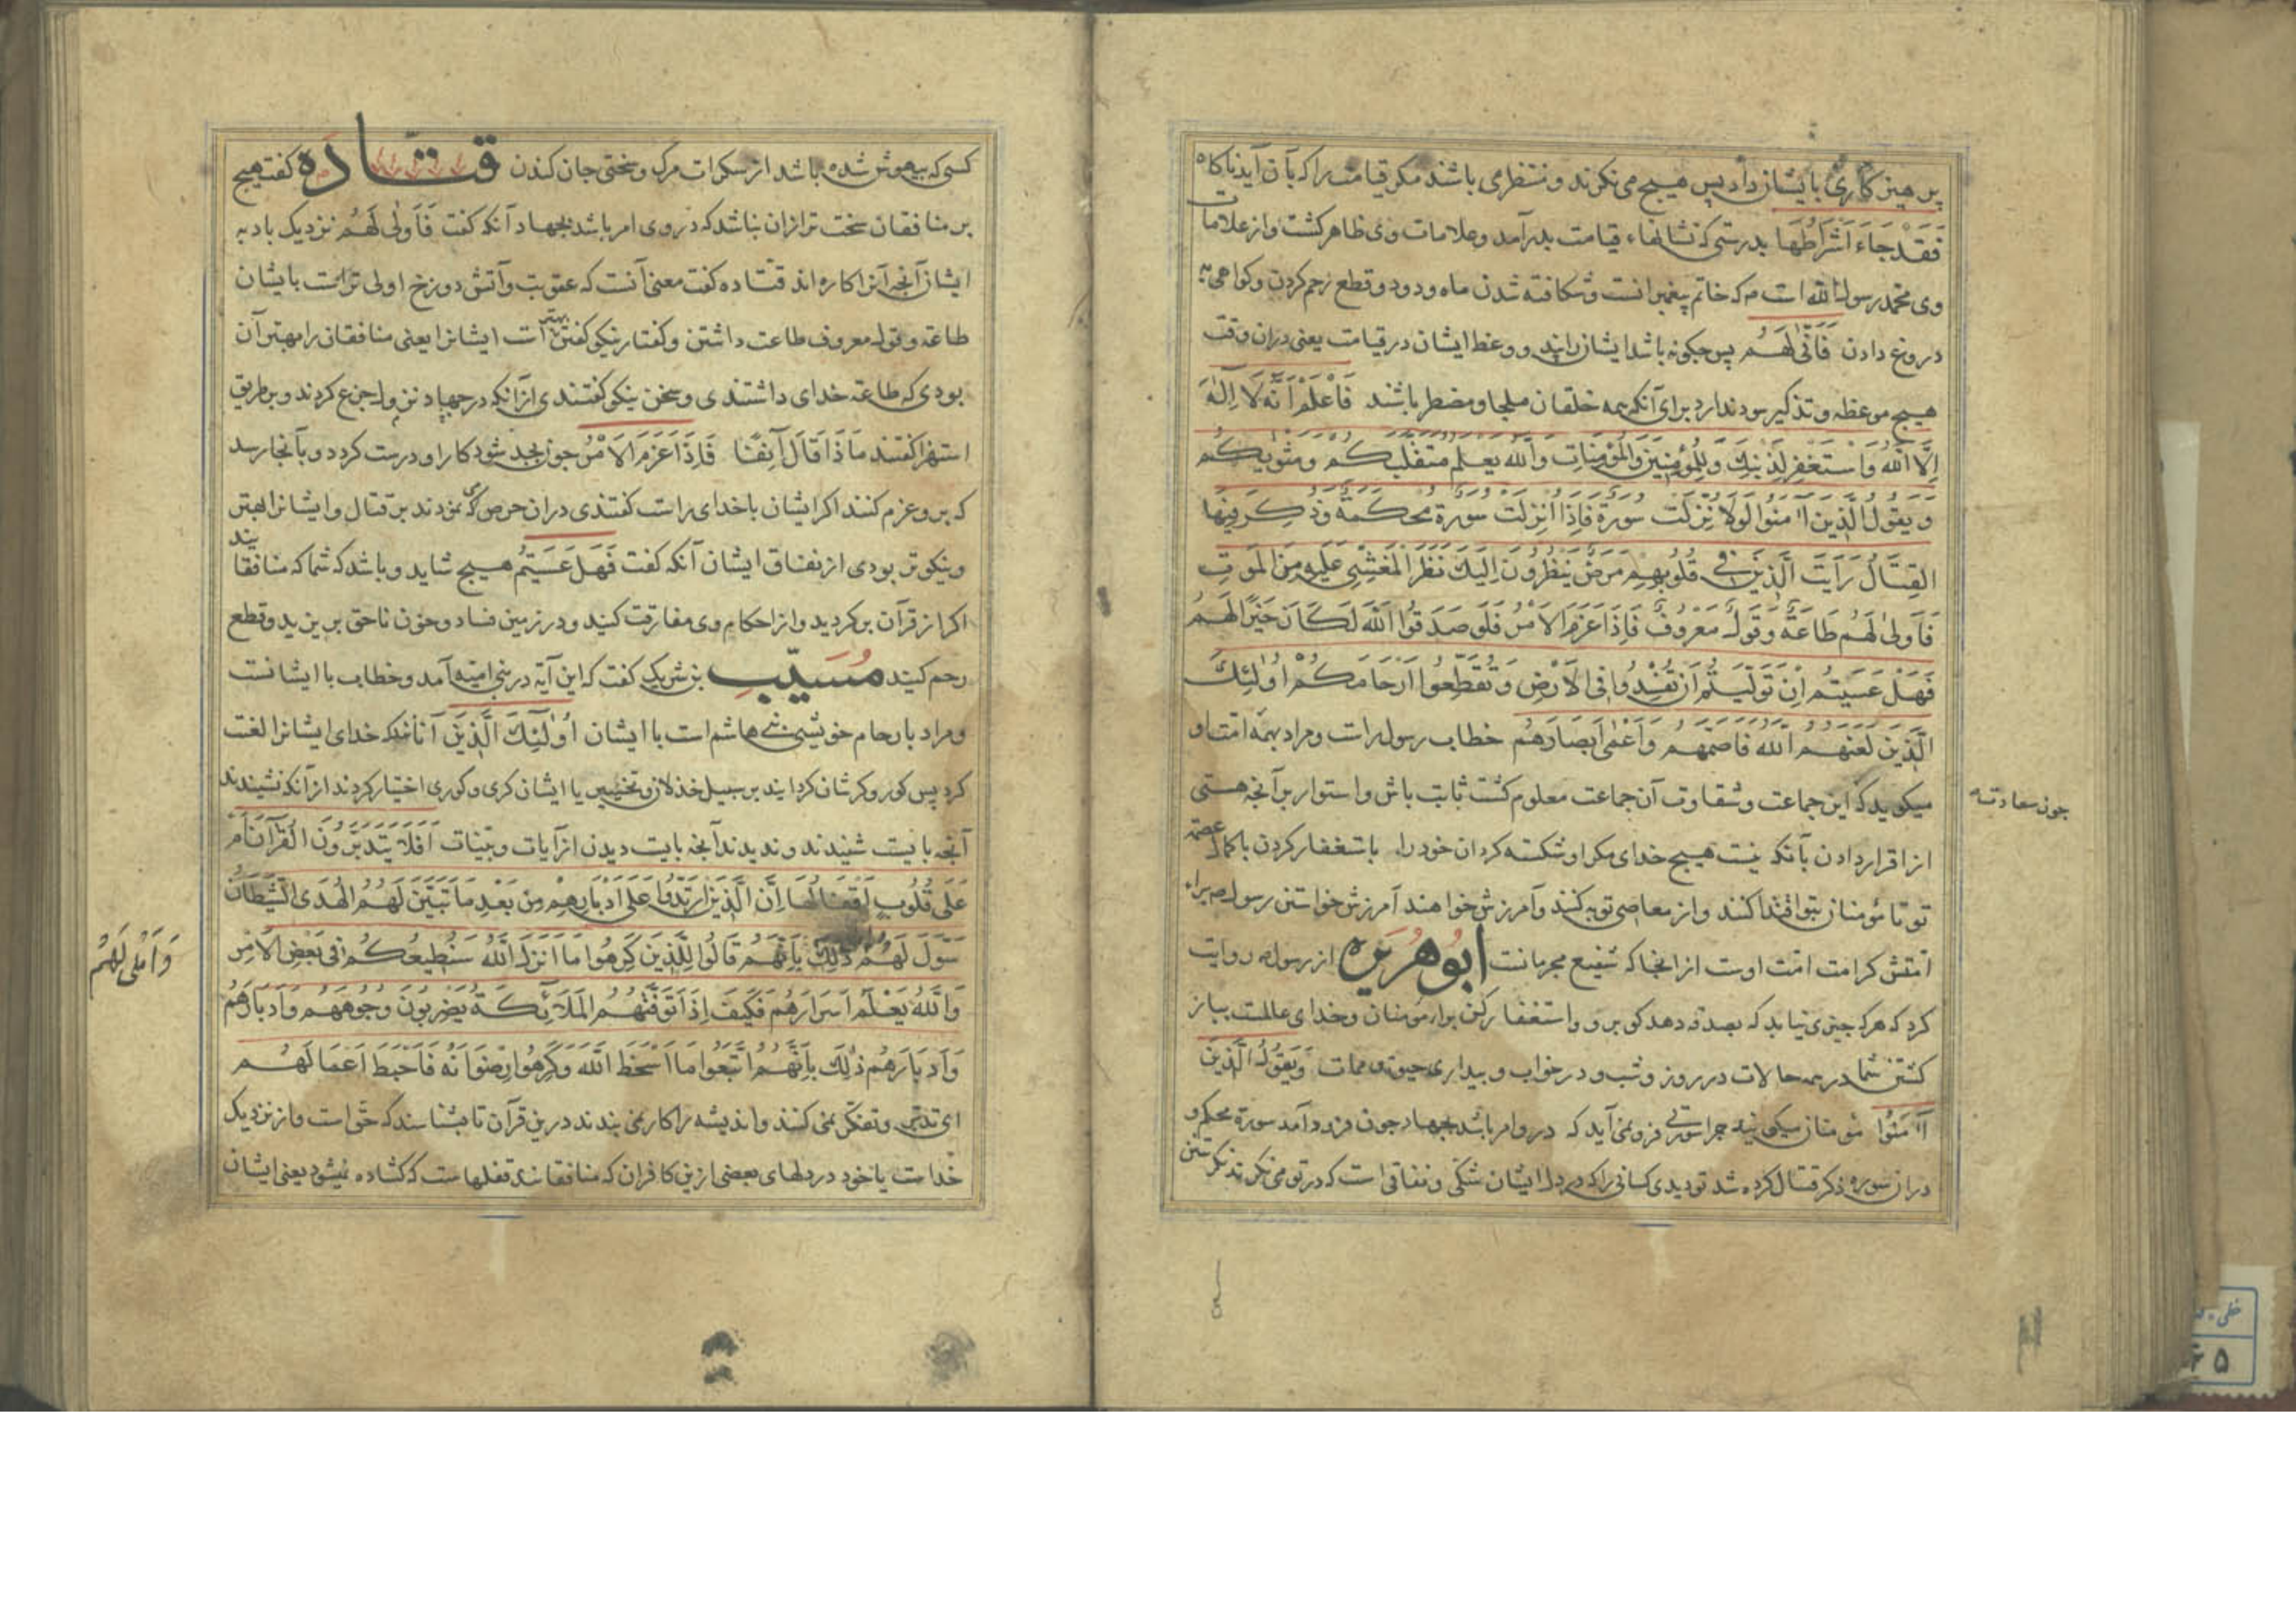 پرهیزکاری بایشان داد پس هیچ می نکرند و منتظر می باشند مکر قیامت را که بآن آید ناکاه
فَقَدْ جَاءَ اَشْرَاطُهَا بدرستی که نشانهاء قیامت بدر آمد و علامات وی ظاهر کشت و از علامات
وی محمد رسول الله است م که خاتم پیغمبرانست و شکافته شدن ماه و دود و قطع رحم کردن و کواهی به
دروغ دادن فَاَنّٰی لَهُم پس چکونه باشد ایشانرا پند و وعظ ایشان در قیامت یعنی دران وقت
هیچ موعظه و تذکیر سود ندارد برای آنکه همه خلقان ملجا و مضطر باشند فَاعْلَمْ اَنَّهُ لَا اِلٰهَ
اِلَّا اللّٰهُ وَاسْتَغْفِر لِذَنْبِكَ وَلِلْمُؤمِنِینَ وَالْمُؤمِنَاتِ وَاللّٰه یعلم متقلبكم ومثویكم
وَیقول الَّذِینَ اٰمَنوا لَوْلَا نُزِّلَت سورَة فَاِذَا اُنزِلَت سورَة محكمة وَذُكِرَ فِیهَا
القِتَالُ رَاَیتَ الَّذِینَ فی قُلُوبِهِم مَرَضٌ ینظُرُونَ اِلَیكَ نَظَرَ الْمَغْشِیِّ عَلَیهِ مِنَ الْمَوتِ
فَاَولیٰ لَهُم طَاعَةٌ وَقَولٌ مَعْرُوفٌ فَاِذَا عَزَمَ الاَمْرُ فَلَو صَدَقُوا اللّٰهَ لَكَانَ خَیرًا لَهُم
فَهَلْ عَسَیتُم اِنْ تَوَلَّیتُم اَن تُفْسِدُوا فِی الْاَرْضِ وَتُقَطِّعُوا اَرْحَامَكُمْ اُولٰئِكَ
الَّذِینَ لَعَنَهُم اللّٰهُ فَاَصَمَّهُم وَاَعْمٰی اَبْصَارَهُم خطاب رسول راست و مراد بهمه امت او
میکوید که این جماعت و شقاوت آن جماعت معلوم کشت ثابت باش و استوار بر آنچه هستی
چون سعادت
از اقرار دادن بآنکه نیست هیچ خدای مکر او و شکسته کردان خود را باستغفار کردن باکمال عصمة
تو تا مؤمنان بتو اقتدا کنند و از معاصی توبه کنند و آمرزش خواهند آمرزش خواستن رسول م براء
امتش کرامت امت اوست از انجا که شفیع مجرمانست ابُو هُرَیره از رسول م روایت
کرد که هرکه چیزی نیابد که بصدقه دهد کو برو و استغفار کن برا مؤمنان و خدای عالمست بباز
کشتن شما در همه حالات در روز و شب و در خواب و بیداری حیوة و ممات وَیَقُولُ الَّذِینَ
آمَنُوا مؤمنان میکویند چرا سورتی فرو نمی آید که در و امر باشد بجهاد چون فرود آمد سورة محکم و
دران سوره ذکر قتال کرده شد تو دیدی کسانی را که در دل ایشان شکّی و نفاقی است که در تو می نکرند نکرستن
کسی که بیهوش شده باشد از سکرات مرک و سختی جان کندن قتاده کفت هیچ
بر منافقان سخت تر ازان نباشد که در وی امر باشد بجهاد آنکه کفت فَاَولٰی لَهُم نزدیک باد به
ایشان آنچه آنرا کاره اند قتاده کفت معنی آنست که عقوبت و آتش دوزخ اولی تر است بایشان
طاعة وقول معروف طاعت داشتن و کفتار نیکو کفتن بهتر است ایشانرا یعنی منافقان را مهتر آن
بودی که طاعة خدای داشتندی و سخن نیکو کفتندی ازانکه در جهاد نزول جزع کردند و بر طریق
استهزا کفتند مَاذَا قَالَ آنِفًا فَاِذَا عَزَمَ الاَمْرُ چون بجد شود کارا و درست کردد و بآنجا رسد
که برو عزم کنند اکر ایشان با خدای راست کفتندی دران حرص که می نمودند بر قتال و ایشانرا بهتر
و نیکوتر بودی از نفاق ایشان آنکه کفت فَهَل عَسَیتُم هیچ شاید و باشد که شما که منافقانید
اکر از قرآن برکردید و از احکام وی مفارقت کنید و در زمین فساد و خون ناحق بریزید و قطع
رحم کنید مُسَیِّب بن شریک کفت که این آیة در بنی امیّه آمد و خطاب با ایشانست
و مراد بارحام خویشی بنی هاشم است با ایشان اُولٰئِكَ الَّذِینَ آنانند که خدای ایشانرا لعنت
کرد پس کور و کرشان کردانید بر سبیل خذلان و تخییب یا ایشان کری و کوری اختیار کردند ازآنکه نشنیدند
آنچه بایست شنیدند و ندیدند آنچه بایست دیدن از آیات و بیّنات اَفَلَا یَتَدَبَّرُونَ القُرآنَ اَمْ
عَلٰی قُلُوبٍ اَقْفَالُهَا اِنَّ الَّذِینَ ارْتَدُّوا عَلٰی اَدْبَارِهِمْ مِن بَعْدِ مَا تَبَیَّنَ لَهُمُ الْهُدَی الشَّیْطَانُ
سَوَّلَ لَهُمْ ذٰلِكَ بِاَنَّهُمْ قَالُوا لِلَّذِینَ كَرِهُوا مَا اَنزَلَ اللّٰهُ سَنُطِیعُكُمْ فِی بَعْضِ الْاَمْرِ
وَاَمْلٰی لَهُمْ
وَاللّٰهُ یَعْلَمُ اَسْرَارَهُمْ فَكَیفَ اِذَا تَوَفَّتْهُمُ الْمَلَائِكَةُ یَضْرِبُونَ وُجُوهَهُم وَاَدْبَارَهُم
وَاَدْبَارَهُم ذٰلِكَ بِاَنَّهُمُ اتَّبَعُوا مَا اَسْخَطَ اللّٰهَ وَكَرِهُوا رِضْوَانَهُ فَاَحْبَطَ اَعْمَالَهُم
ای تدبّر و تفکّر نمی کنند و اندیشه را کار نمی بندند درین قرآن تا بشناسند که حقّ است و از نزدیک
خداست یا خود در دلهای بعضی ازین کافران که منافقانند قفلهاست که کشاده نمیشود یعنی ایشان
خطی
۶۵